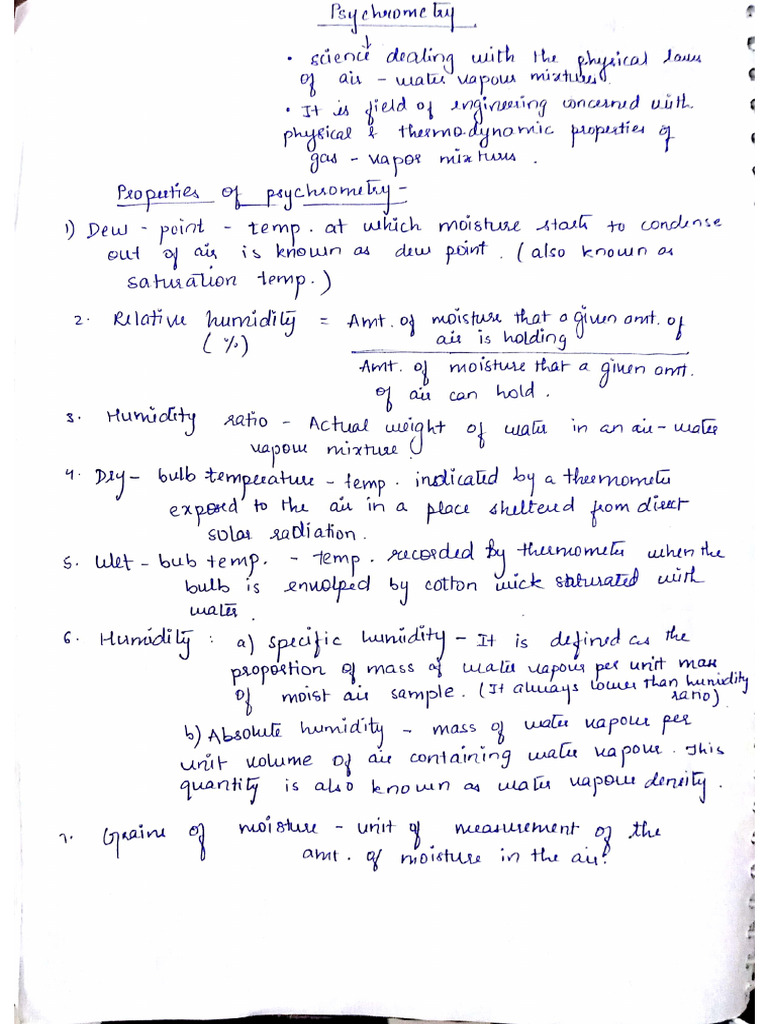 Psychrometry
• science dealing with the physical laws
of air - water vapour mixtures.
• It is field of engineering concerned with
physical & thermo-dynamic properties of
gas - vapor mixtures.
Properties of psychrometry -
1) Dew - point - temp. at which moisture starts to condense
out of air is known as dew point. (also known as
saturation temp.)
2. Relative humidity = Amt. of moisture that a given amt. of
air is holding
(%)
Amt. of moisture that a given amt.
of air can hold.
3. Humidity ratio - Actual weight of water in an air-water
vapour mixture.
4. Dry - bulb temperature - temp. indicated by a thermometer
exposed to the air in a place sheltered from direct
solar radiation.
5. Wet - bub temp. - temp. recorded by thermometer when the
bulb is envolped by cotton wick saturated with
water.
6. Humidity : a) specific humidity - It is defined as the
proportion of mass of water vapour per unit mass
of moist air sample. (It always lower than humidity
ratio)
b) Absolute humidity - mass of water vapour per
unit volume of air containing water vapour. This
quantity is also known as water vapour density.
7. Grains of moisture - unit of measurement of the
amt. of moisture in the air.